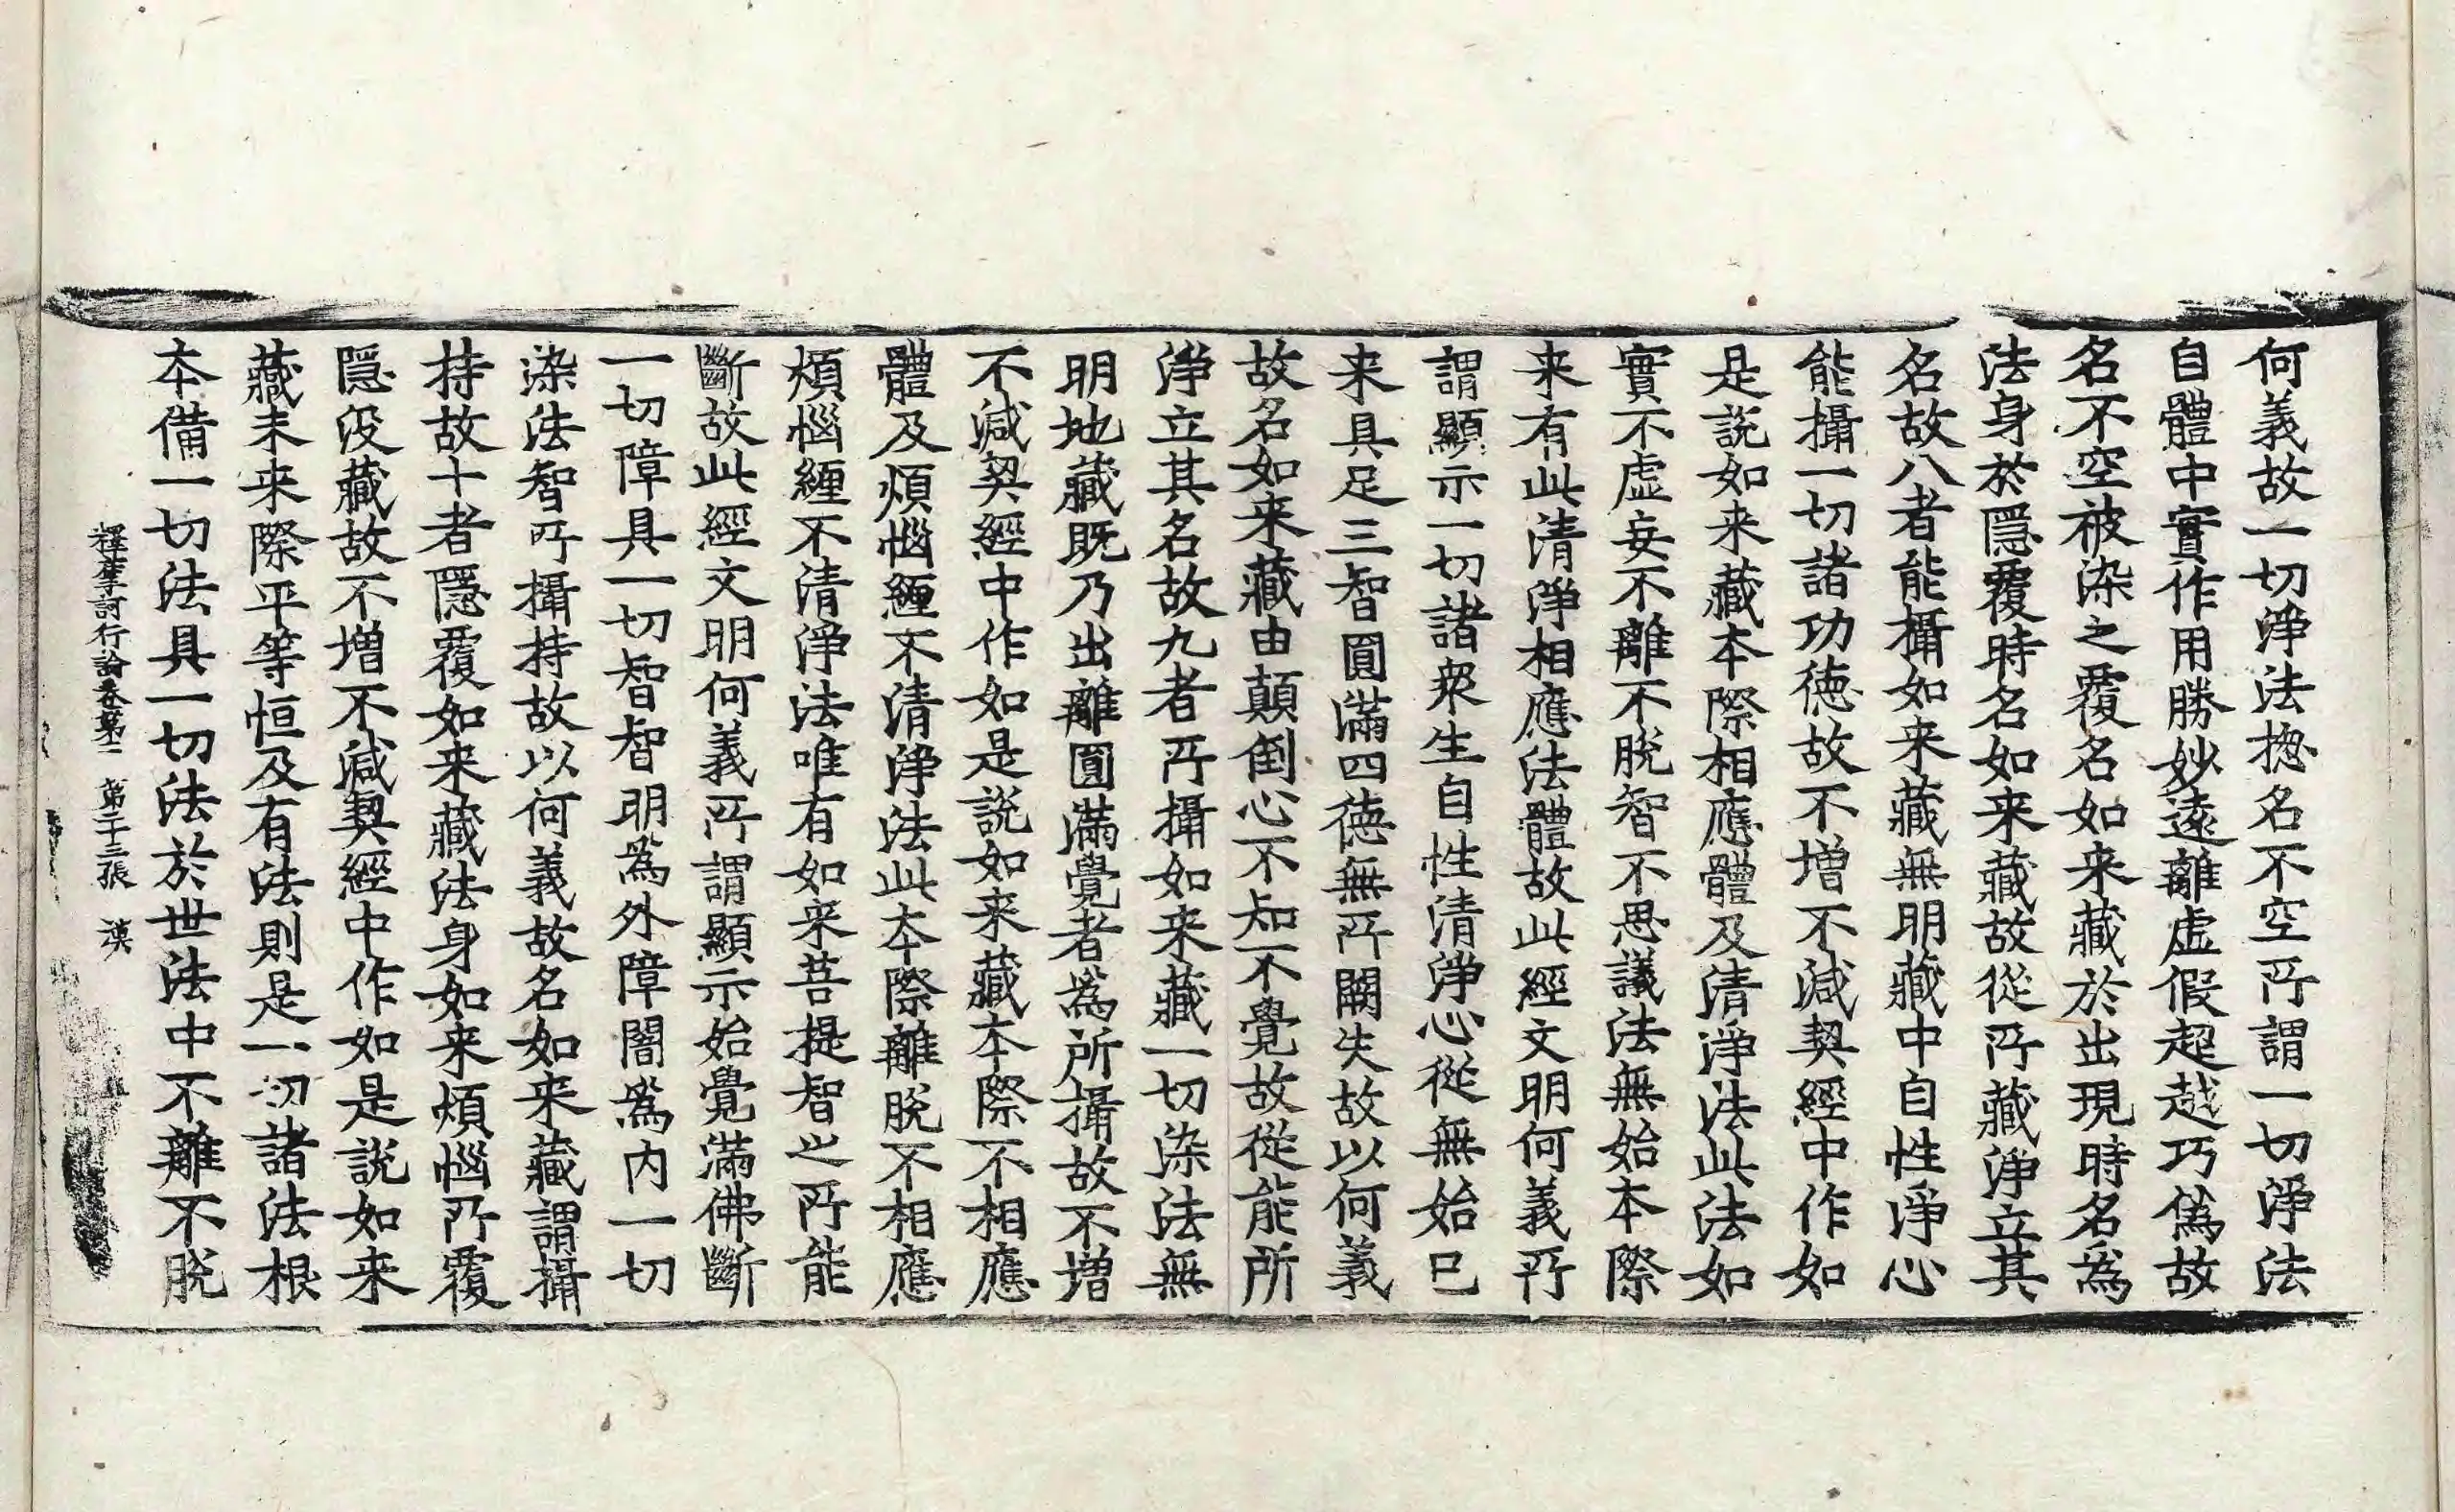 何義故一切淨法揔名不空所謂一切淨法
自體中實作用勝妙遠離虛假超越巧僞故
名不空被染之覆名如来藏於出現時名爲
法身於隱覆時名如来藏故從所藏淨立其
名故八者能攝如来藏無明藏中自性淨心
能攝一切諸功德故不增不減契經中作如
是說如来藏本際相應體及清淨法此法如
實不虛妄不離不脫智不思議法無始本際
来有此清淨相應法體故此經文明何義所
謂顯示一切諸衆生自性清淨心從無始已
来具足三智圓滿四德無所闕失故以何義
故名如来藏由顛倒心不知不覺故從能所
淨立其名故九者所攝如来藏一切染法無
明地藏既乃出離圓滿覺者爲所攝故不增
不減契經中作如是說如来藏本際不相應
體及煩惱纏不清淨法此本際離脫不相應
煩惱纏不清淨法唯有如来菩提智之所能
斷故此經文明何義所謂顯示始覺滿佛斷
一切障具一切智智明爲外障闇爲內一切
染法智所攝持故以何義故名如来藏謂攝
持故十者隱覆如来藏法身如来煩惱所覆
隱没藏故不增不減契經中作如是說如来
藏未来際平等恒及有法則是一切諸法根
本備一切法具一切法於世法中不離不脫
釋摩訶衍論卷第二 第二十三張 漢